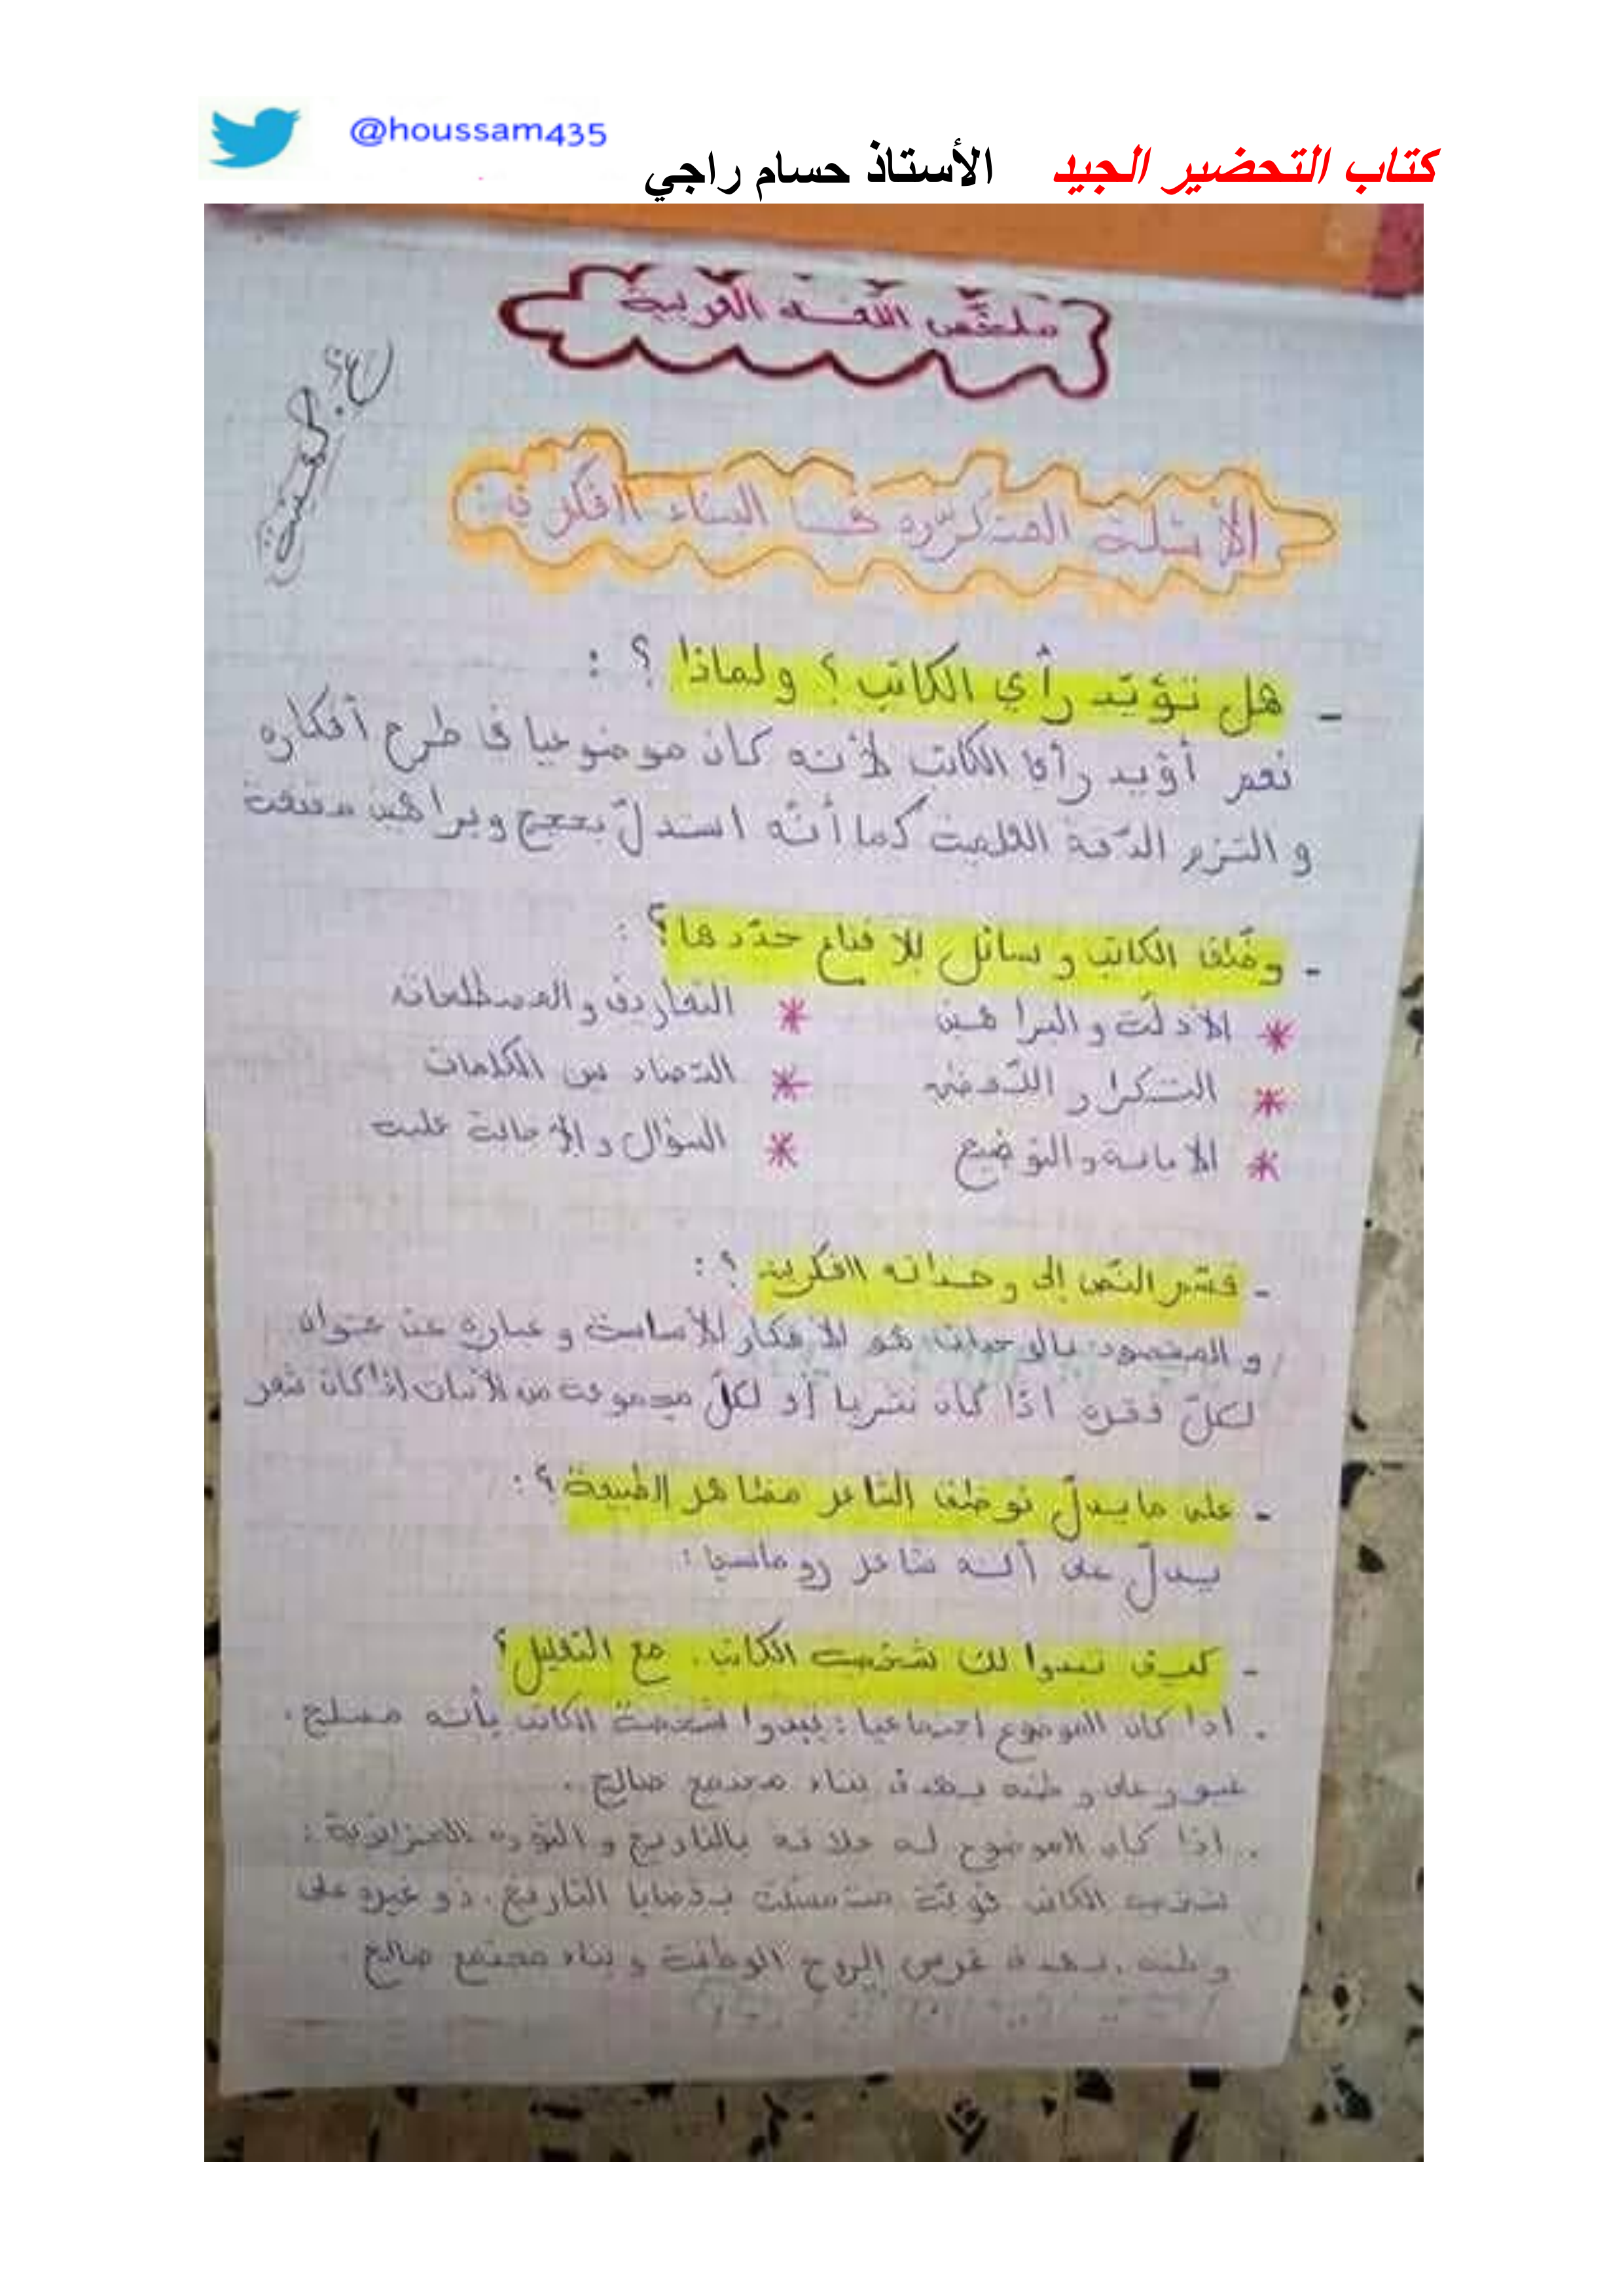 @houssam435
كتاب التحضير الجيد الأستاذ حسام راجي
ملخّص اللغة العربية
الأسئلة المتكرّرة في البناء الفكري :
- هل تؤيّد رأي الكاتب ؟ ولماذا ؟ :
نعم أؤيد رأي الكاتب لأنه كان موضوعيا في طرح أفكاره
و التزم الدّقة العلمية كما أنّه استدلّ بحجج وبراهين مقنعة
- وظّف الكاتب وسائل للإقناع حدّدها ؟ :
* الأدلّة والبراهين * التعاريف والمصطلحات
* التكرار و * التضاد بين الكلمات
* الإبانة والتوضيح * السؤال والإجابة عليه
- قسّم النّص إلى وحداته الفكرية ؟ :
و المقصود بالوحدات هو الأفكار الأساسية وعبارة عن عنوان
لكلّ فقرة اذا كان نثريا أو لكلّ مجموعة من الأبيات إذا كان شعر
- على ما يدلّ توظيف الشاعر مظاهر الطبيعة ؟ :
يدلّ على أنه شاعر رومانسي :
- كيف تبدوا لك شخصية الكاتب . مع التعليل ؟
. اذا كان الموضوع اجتماعيا : تبدوا شخصية الكاتب بأنه مصلح .
غيور على وطنه يهدف بناء مجتمع صالح .
. اذا كان الموضوع له علاقة بالتاريخ و الثورة الجزائرية :
شخصية الكاتب قويّة متمسّكة بقضايا التاريخ . ذو غيرة على
وطنه . يهدف غرس الروح الوطنية و بناء مجتمع صالح .